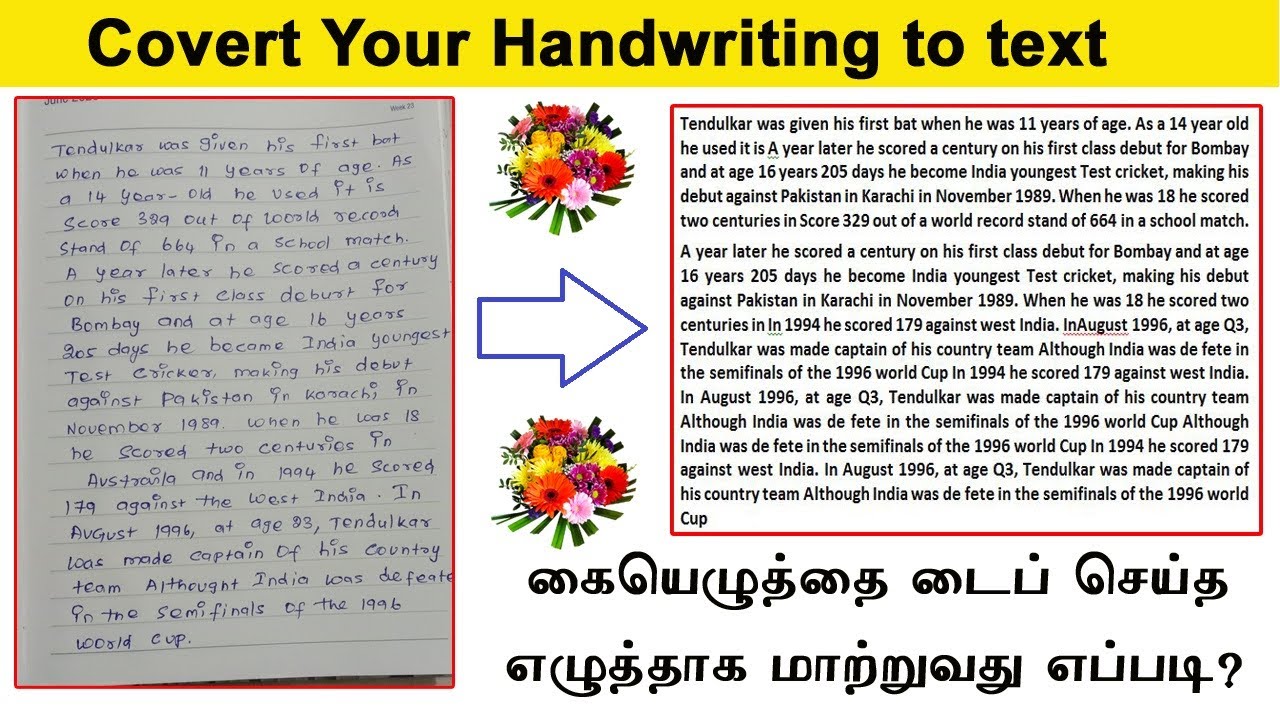 Covert Your Handwriting to text
Week 23
Tendulkar was given his first bat
when he was 11 years of age. As
a 14 year-old he used it is
Score 329 out of world record
Stand of 664 in a school match.
A year later he scored a century
on his first class deburt for
Bombay and at age 16 years
205 days he became India youngest
Test cricker, making his debut
against Pakistan in Karachi in
November 1989. when he was 18
he scored two centuries in
Austraila and in 1994 he scored
179 against the west India. In
August 1996, at age 23, Tendulkar
was made captain of his country
team Althought India was defeate
in the semifinals of the 1996
world cup.
Tendulkar was given his first bat when he was 11 years of age. As a 14 year old
he used it is A year later he scored a century on his first class debut for Bombay
and at age 16 years 205 days he become India youngest Test cricket, making his
debut against Pakistan in Karachi in November 1989. When he was 18 he scored
two centuries in Score 329 out of a world record stand of 664 in a school match.
A year later he scored a century on his first class debut for Bombay and at age
16 years 205 days he become India youngest Test cricket, making his debut
against Pakistan in Karachi in November 1989. When he was 18 he scored two
centuries in In 1994 he scored 179 against west India. InAugust 1996, at age Q3,
Tendulkar was made captain of his country team Although India was de fete in
the semifinals of the 1996 world Cup In 1994 he scored 179 against west India.
In August 1996, at age Q3, Tendulkar was made captain of his country team
Although India was de fete in the semifinals of the 1996 world Cup Although
India was de fete in the semifinals of the 1996 world Cup In 1994 he scored 179
against west India. In August 1996, at age Q3, Tendulkar was made captain of
his country team Although India was de fete in the semifinals of the 1996 world
Cup
கையெழுத்தை டைப் செய்த
எழுத்தாக மாற்றுவது எப்படி?